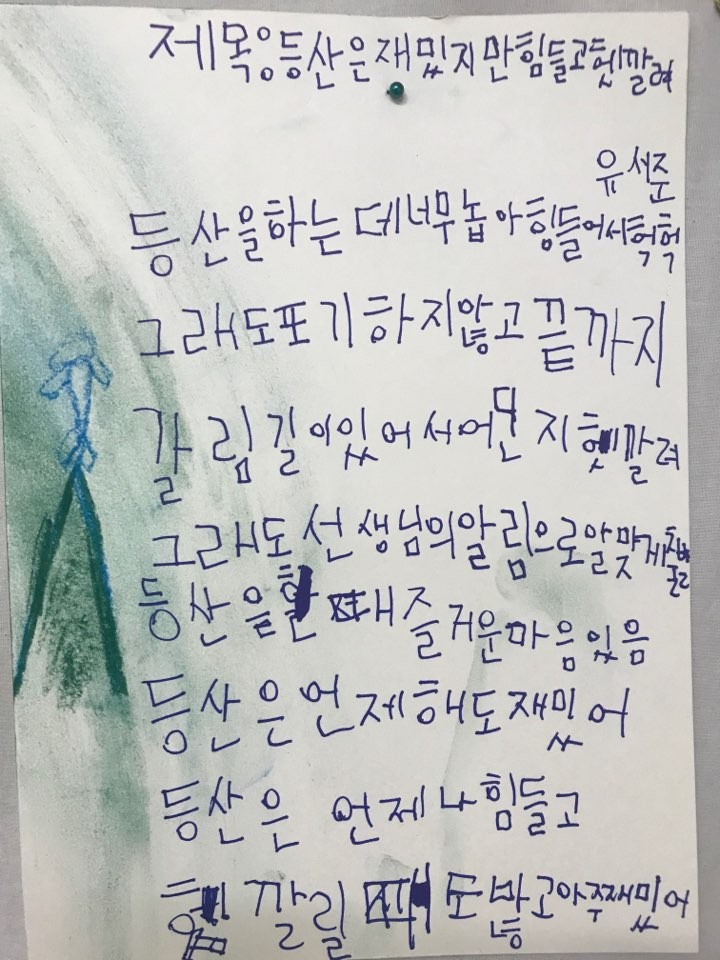 제목:등산은재밌지만힘들고헷깔려
유서준
등산을하는데너무높아힘들어서헉헉
그래도포기하지않고끝까지
갈림길이있어서어딘지헷깔려
그래도선생님의알림으로알맞게출발
등산을할때즐거운마음있음
등산은언제해도재밌어
등산은 언제나힘들고
깔릴 도많고아주재밌어